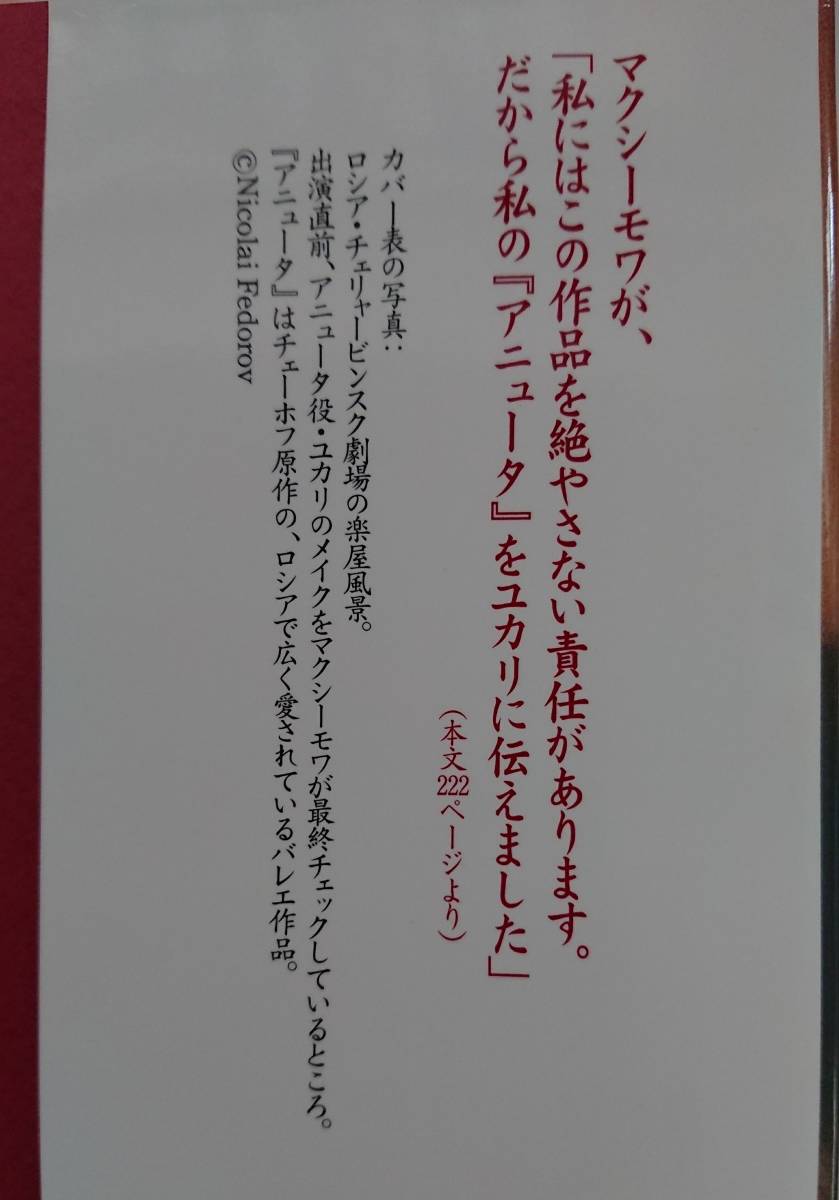 マクシーモワが、
「私にはこの作品を絶やさない責任があります。
だから私の『アニュータ』をユカリに伝えました」
（本文222ページより）
カバー表の写真：
ロシア・チェリャービンスク劇場の楽屋風景。
出演直前、アニュータ役・ユカリのメイクをマクシーモワが最終チェックしているところ。
『アニュータ』はチェーホフ原作の、ロシアで広く愛されているバレエ作品。
©Nicolai Fedorov